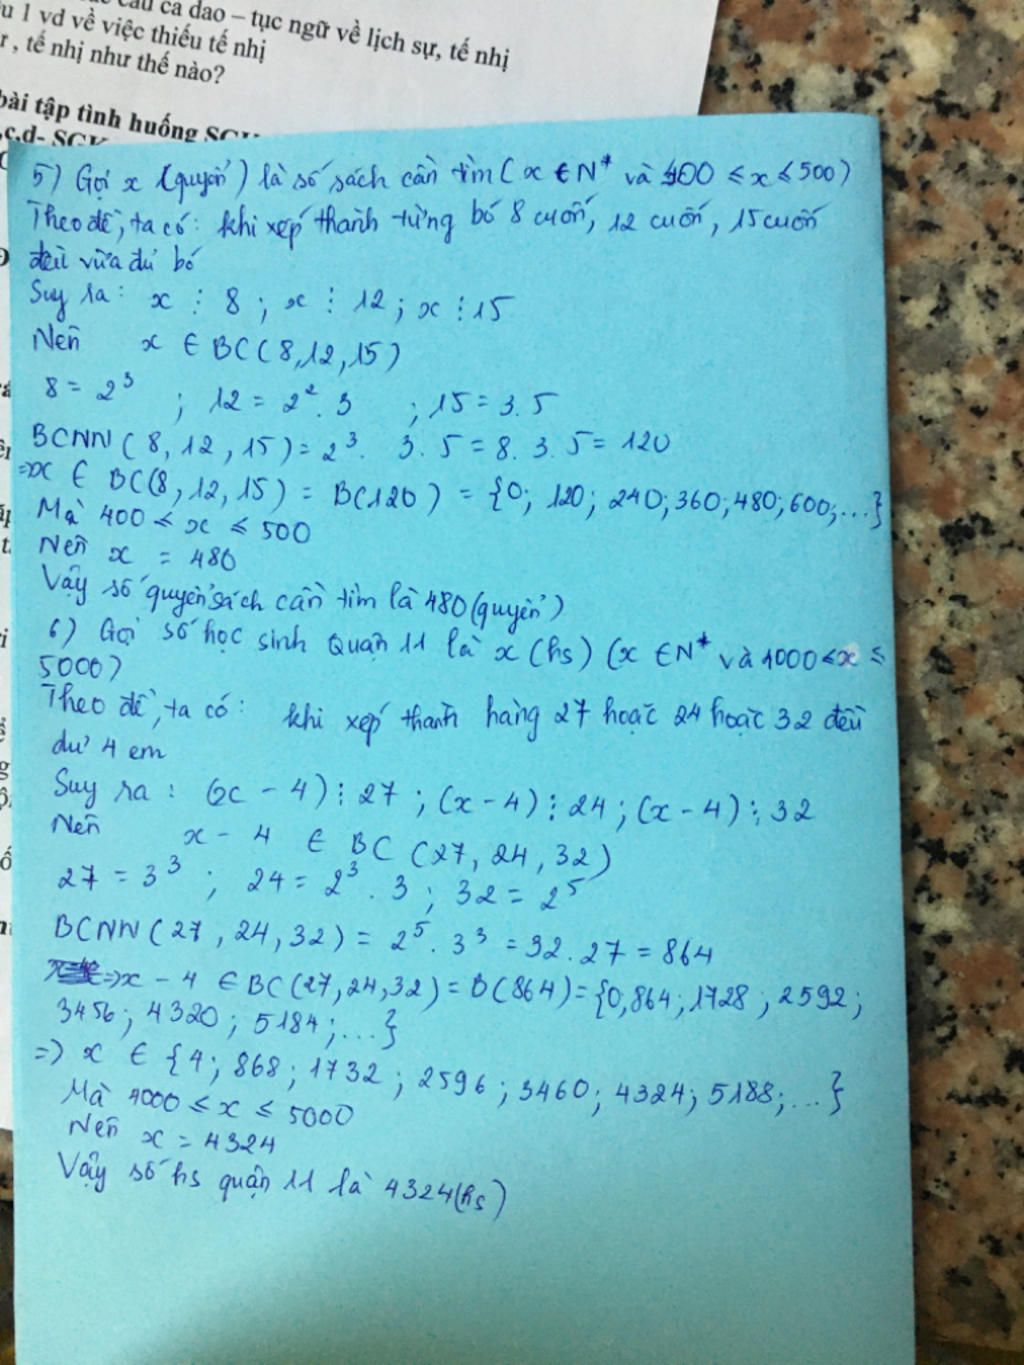 câu ca dao – tục ngữ về lịch sự, tế nhị
u 1 vd về việc thiếu tế nhị
, tế nhị như thế nào?
bài tập tình huống
c,d- SGK
5) Gọi x (quyển) là số sách cần tìm ( x ∈ N* và 400 ≤ x ≤ 500)
Theo đề, ta có: khi xếp thành từng bó 8 cuốn, 12 cuốn, 15 cuốn
đều vừa đủ bó
Suy ra: x ⋮ 8 ; x ⋮ 12 ; x ⋮ 15
Nên x ∈ BC ( 8,12,15)
8 = 2³ ; 12 = 2² . 3 ; 15 = 3. 5
BCNN ( 8, 12 , 15 ) = 2³. 3 . 5 = 8. 3. 5 = 120
⇒ x ∈ BC(8, 12, 15) = B(120) = {0; 120; 240; 360; 480; 600; ...}
Mà 400 ≤ x ≤ 500
Nên x = 480
Vậy số quyển sách cần tìm là 480 (quyển)
6) Gọi số học sinh Quận 11 là x (hs) (x ∈ N* và 4000 ≤ x ≤
5000)
Theo đề, ta có: khi xếp thành hàng 27 hoặc 24 hoặc 32 đều
dư 4 em
Suy ra : (x - 4) ⋮ 27 ; (x - 4) ⋮ 24 ; (x - 4) ⋮ 32
Nên x - 4 ∈ BC (27, 24, 32)
27 = 3³ ; 24 = 2³ . 3 ; 32 = 2⁵
BCNN (27, 24, 32) = 2⁵. 3³ = 32. 27 = 864
⇒ x - 4 ∈ BC(27,24,32) = B(864) = {0,864; 1728; 2592;
3456; 4320; 5184; ...}
⇒ x ∈ {4; 868; 1732; 2596; 3460; 4324; 5188; ...}
Mà 4000 ≤ x ≤ 5000
Nên x = 4324
Vậy số hs quận 11 là 4324(hs)